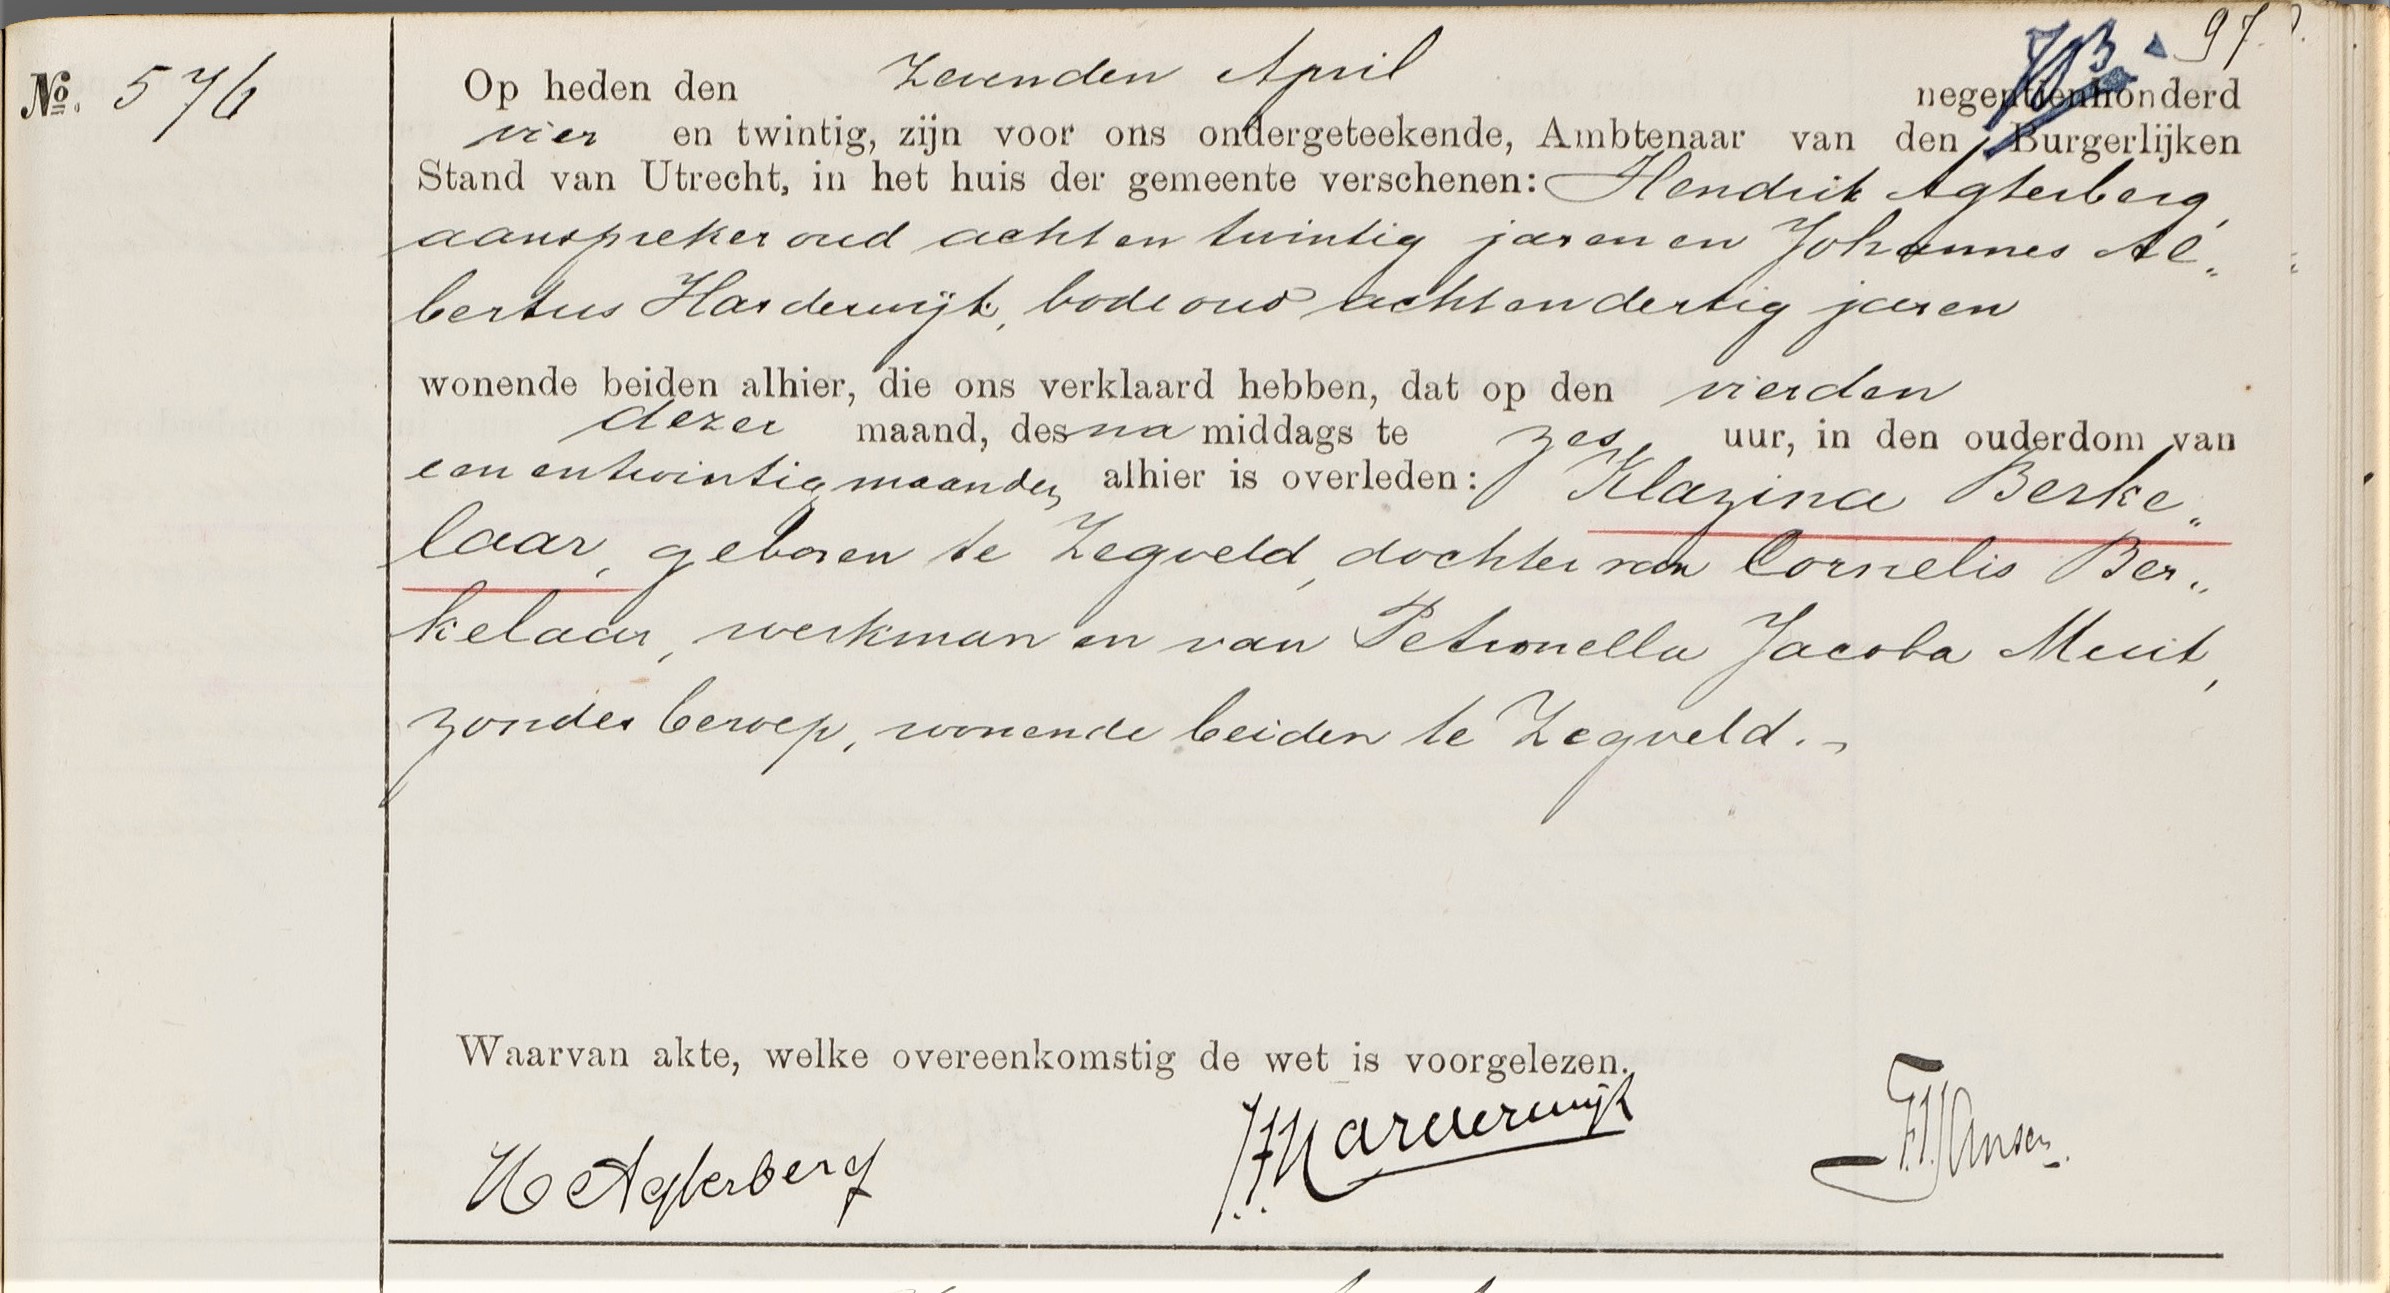 97.
No. 576
Op heden den Zevenden April negentienhonderd
vier en twintig, zijn voor ons ondergeteekende, Ambtenaar van den Burgerlijken
Stand van Utrecht, in het huis der gemeente verschenen: Hendrik Agterberg,
aanspreker oud acht en twintig jaren en Johannes Al„
bertus Harderwijk, bode oud acht en dertig jaren
wonende beiden alhier, die ons verklaard hebben, dat op den vierden
dezer maand, des na middags te zes uur, in den ouderdom van
een en twintig maanden alhier is overleden: Klazina Berke„
laar, geboren te Zegveld, dochter van Cornelis Ber„
kelaar, werkman en van Petronella Jacoba Muit,
zonder beroep, wonende beiden te Zegveld.
Waarvan akte, welke overeenkomstig de wet is voorgelezen.
H Agterberg
JA Harderwijk
Jansen